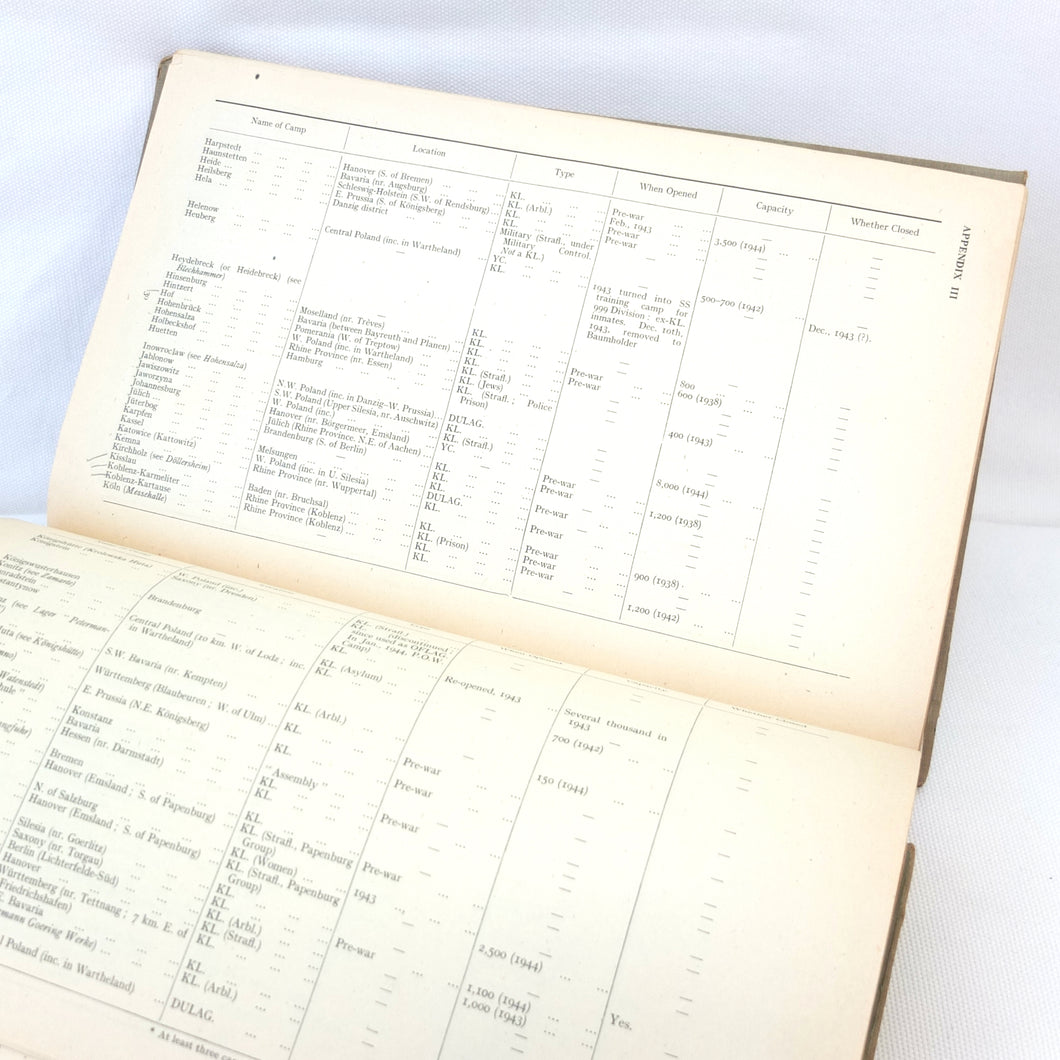 APPENDIX III
Name of Camp
Harpstedt ... ... ... ...
Haunstetten ... ... ... ...
Heide ... ... ... ...
Heilsberg ... ... ... ...
Hela ... ... ... ...
Helenow ... ... ... ...
Heuberg ... ... ... ...
Heydebreck (or Heidebreck) (see
Blechhammer) ... ... ...
Hinsenburg ... ... ...
Hintzert ... ... ...
Hof ... ... ...
Hohenbrück ... ... ...
Hohensalza ... ... ...
Holbeckshof ... ... ...
Huetten ... ... ...
Inowroclaw (see Hohensalza)
Jablonow ... ... ...
Jawiszowitz ... ... ...
Jaworzyna ... ... ...
Johannesburg ... ... ...
Jülich ... ... ...
Jüterbog ... ... ...
Karpfen ... ... ...
Kassel ... ... ...
Katowice (Kattowitz) ... ...
Kemna ... ... ...
Kirchholz (see Döllersheim) ...
Kisslau ... ... ...
Koblenz-Karmeliter ... ...
Koblenz-Kartause ... ...
Köln (Messehalle) ... ...
Location
Hanover (S. of Bremen) ... ...
Bavaria (nr. Augsburg) ... ...
Schleswig-Holstein (S.W. of Rendsburg) ...
E. Prussia (S. of Königsberg) ... ...
Danzig district ... ... ...
Central Poland (inc. in Wartheland) ...
Moselland (nr. Trêves) ... ...
Bavaria (between Bayreuth and Planen) ...
Pomerania (W. of Treptow) ... ...
W. Poland (inc. in Wartheland) ...
Rhine Province (nr. Essen) ... ...
Hamburg ... ... ...
N.W. Poland (inc. in Danzig–W. Prussia) ...
S.W. Poland (Upper Silesia, nr. Auschwitz)
W. Poland (inc.) ... ...
Hanover (nr. Börgermeer, Emsland) ...
Jülich (Rhine Province. N.E. of Aachen) ...
Brandenburg (S. of Berlin) ... ...
Melsungen ... ... ...
W. Poland (inc. in U. Silesia) ...
Rhine Province (nr. Wuppertal) ...
Baden (nr. Bruchsal) ... ...
Rhine Province (Koblenz) ... ...
Rhine Province (Koblenz) ... ...
Type
KL. ... ... ...
KL. (Arbl.) ... ...
KL. ... ... ...
KL. ... ... ...
Military (Strafl., under
Military Control.
Not a KL.)
YC. ... ...
KL. ... ...
KL. ... ...
KL. ... ...
KL. ... ...
KL. ... ...
KL. (Strafl.) ...
KL. (Jews) ...
KL. (Strafl.; Police
Prison)
DULAG. ... ...
KL. ... ...
KL. (Strafl.) ...
YC. ... ...
KL. ... ...
KL. ... ...
KL. ... ...
DULAG. ... ...
KL. ... ...
KL. ... ...
KL. (Prison) ...
KL. ... ...
KL. ... ...
When Opened
Pre-war ... ...
Feb., 1943 ... ...
Pre-war ... ...
Pre-war ... ...
1943 turned into SS
training camp for
999 Division; ex-KL.
inmates. Dec. 10th,
1943, removed to
Baumholder
Pre-war ... ...
Pre-war ... ...
Pre-war ... ...
Pre-war ... ...
Pre-war ... ...
Pre-war ... ...
Pre-war ... ...
Pre-war ... ...
Pre-war ... ...
Capacity
3,500 (1944) ...
500–700 (1942) ...
800 ... ...
600 (1938) ...
400 (1943) ...
8,000 (1944) ...
1,200 (1938) ...
900 (1938) ...
1,200 (1942) ...
Whether Closed
Dec., 1943 (?).
Königshütte (Krolewska Huta)
Königstein
Königswusterhausen
Konitz (see Zamarte)
W. Poland (inc.) ...
Saxony (nr. Dresden) ...
Brandenburg
Central Poland (10 km. W. of Lodz; inc.
in Wartheland)
S.W. Bavaria (nr. Kempten) ...
Württemberg (Blaubeuren; W. of Ulm) ...
E. Prussia (N.E. Königsberg) ...
Konstanz ...
Bavaria ...
Hessen (nr. Darmstadt) ...
Bremen ...
Hanover (Emsland; S. of Papenburg)
N. of Salzburg ...
Hanover (Emsland; S. of Papenburg)
Silesia (nr. Goerlitz) ...
Saxony (nr. Torgau) ...
Berlin (Lichterfelde-Süd) ...
Hanover ...
Württemberg (nr. Tettnang; 7 km. E. of
Friedrichshafen)
Bavaria
Goering Werke) ...
Poland (inc. in Wartheland)
KL. (Strafl.)
(discontinued;
since used as OFLAG.
In Jan., 1944, P.O.W.
Camp)
KL. (Asylum) ...
KL. ...
KL. (Arbl.)
KL. ...
KL. ...
"Assembly" ...
KL. ...
KL. ...
KL. ...
KL. (Strafl., Papenburg
Group)
KL. (Women) ...
KL. (Strafl., Papenburg
Group)
KL. ...
KL. ...
KL. (Arbl.) ...
KL. (Strafl.) ...
KL. ...
KL. ...
KL. (Arbl.) ...
DULAG. ...
When Opened
Re-opened, 1943 ...
Pre-war ...
Pre-war ...
Pre-war ...
Pre-war ...
1943 ...
Pre-war ...
Capacity
Several thousand in
1943
700 (1942) ...
150 (1944) ...
2,500 (1944) ...
1,100 (1944) ...
1,000 (1943) ...
Whether Closed
Yes.
* At least three